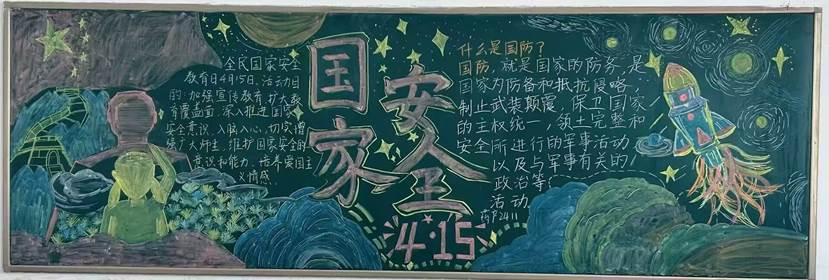 全民国家安全
教育日4月15日,活动目
的:加强宣传教育,扩大教
育覆盖面,深入推进国家
安全意识,入脑入心,切实增
强广大师生,维护国家安全的
意识和能力,培养爱国主
义情感。
国家
安全
4·15
什么是国防?
国防,就是国家的防务,是
国家为防备和抵抗侵略,
制止武装颠覆,保卫国家
的主权统一,领土完整和
安全所进行的军事活动
以及与军事有关的
政治等
活动
药护2411